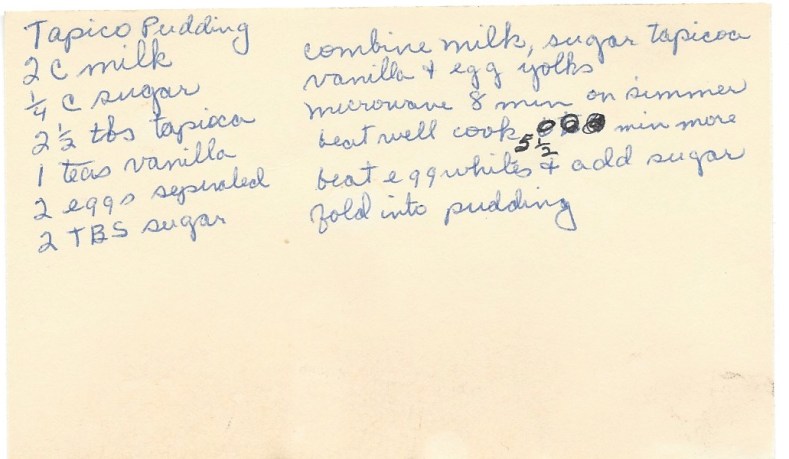 Tapico Pudding
2 C milk
1/4 C sugar
2 1/2 tbs tapioca
1 teas vanilla
2 eggs seperated
2 TBS sugar
combine milk, sugar tapicoa
vanilla & egg yolks
microwave 8 min on simmer
beat well cook 5 1/2 min more
beat egg whites & add sugar
fold into pudding